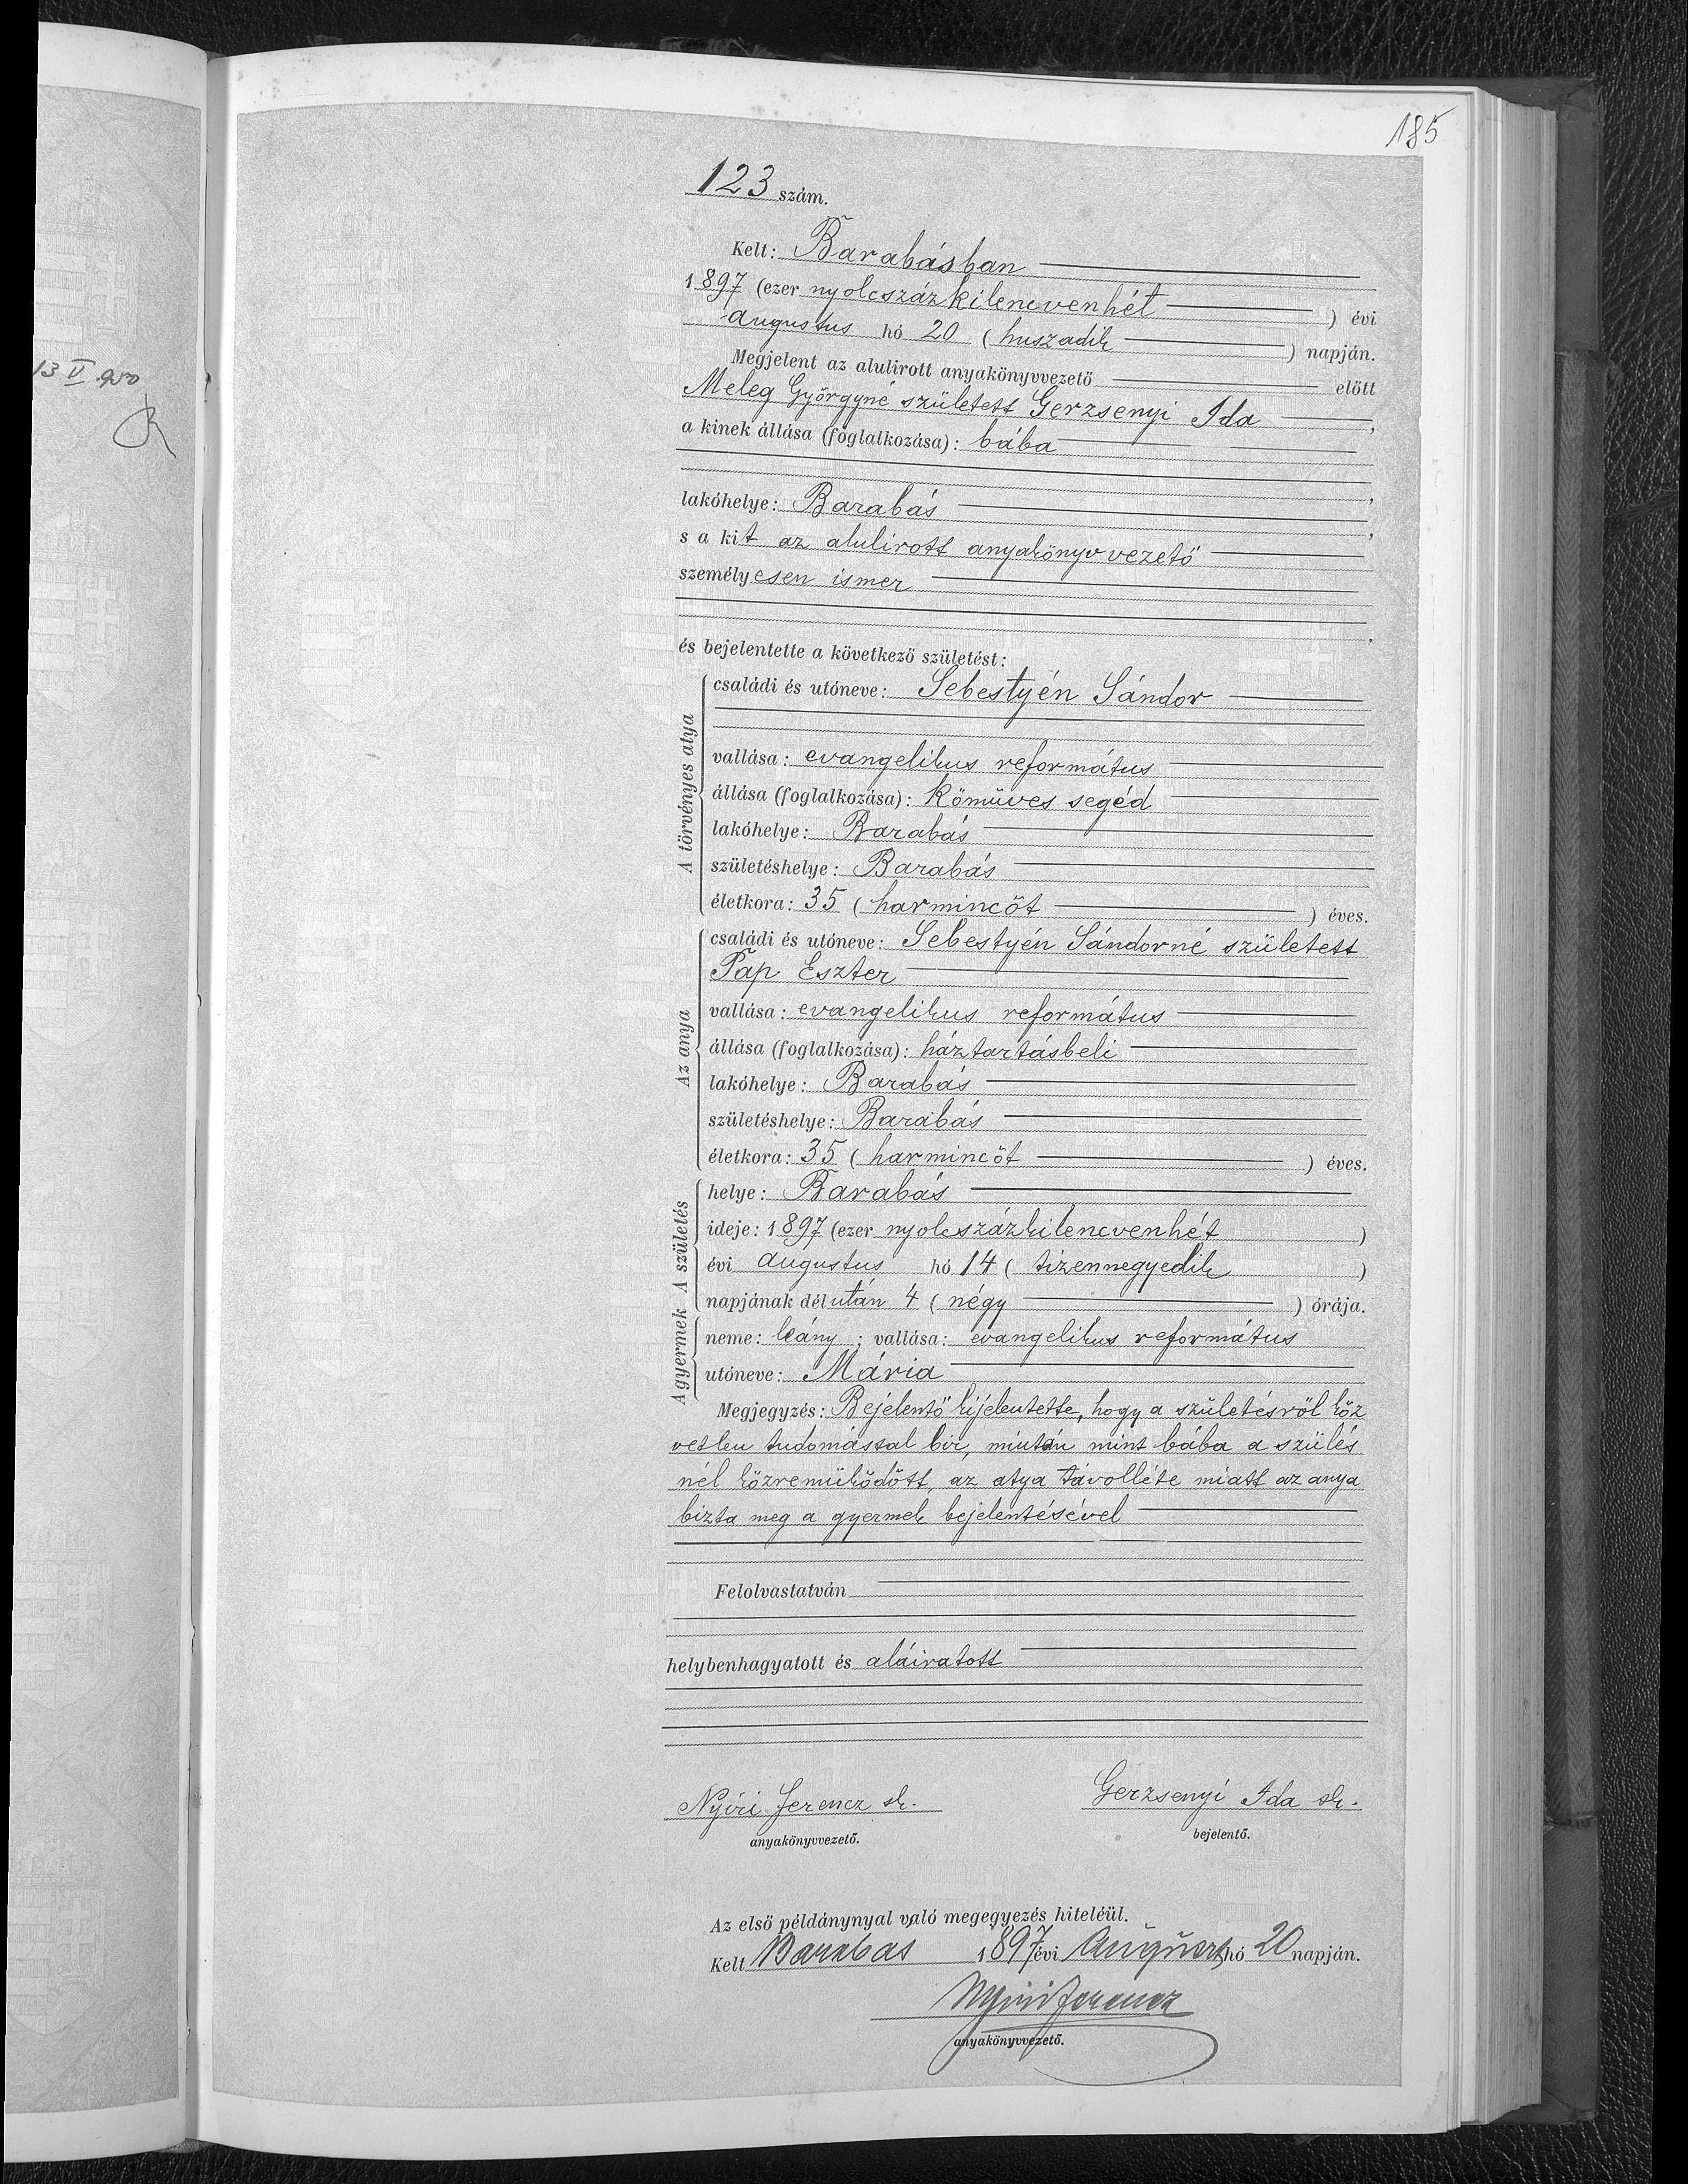 185
13 V 950
123 szám.
Kelt: Barabásban
1897 (ezer nyolcszáz kilencvenhét) évi
augustus hó 20 (huszadik) napján.
Megjelent az alulirott anyakönyvvezető előtt
Meleg Györgyné született Gerzsenyi Ida,
a kinek állása (foglalkozása): bába
,
lakóhelye: Barabás,
s a kit az alulirott anyakönyvvezető
személyesen ismer
.
és bejelentette a következő születést:
A törvényes atya
családi és utóneve: Sebestyén Sándor
vallása: evangelikus református
állása (foglalkozása): Kőmüves segéd
lakóhelye: Barabás
születéshelye: Barabás
életkora: 35 (harmincöt) éves.
Az anya
családi és utóneve: Sebestyén Sándorné született
Pap Eszter
vallása: evangelikus református
állása (foglalkozása): háztartásbeli
lakóhelye: Barabás
születéshelye: Barabás
életkora: 35 (harmincöt) éves.
A születés
helye: Barabás
ideje: 1897 (ezer nyolcszázkilencvenhét)
évi augustus hó 14 (tizennegyedik)
napjának délután 4 (négy) órája.
A gyermek
neme: leány; vallása: evangelikus református
utóneve: Mária
Megjegyzés: Bejelentő kijelentette, hogy a születésről köz
vetlen tudomással bir, miután mint bába a szülés
nél közremüködött, az atya távolléte miatt az anya
bizta meg a gyermek bejelentésével
Felolvastatván
helybenhagyatott és aláiratott
Nyiri Ferencz sk.
anyakönyvvezető.
Gerzsenyi Ida sk.
bejelentő.
Az első példánynyal való megegyezés hiteléül.
Kelt Barabas 1897 évi hó 20 napján.
Nyiri Ferencz
anyakönyvvezető.